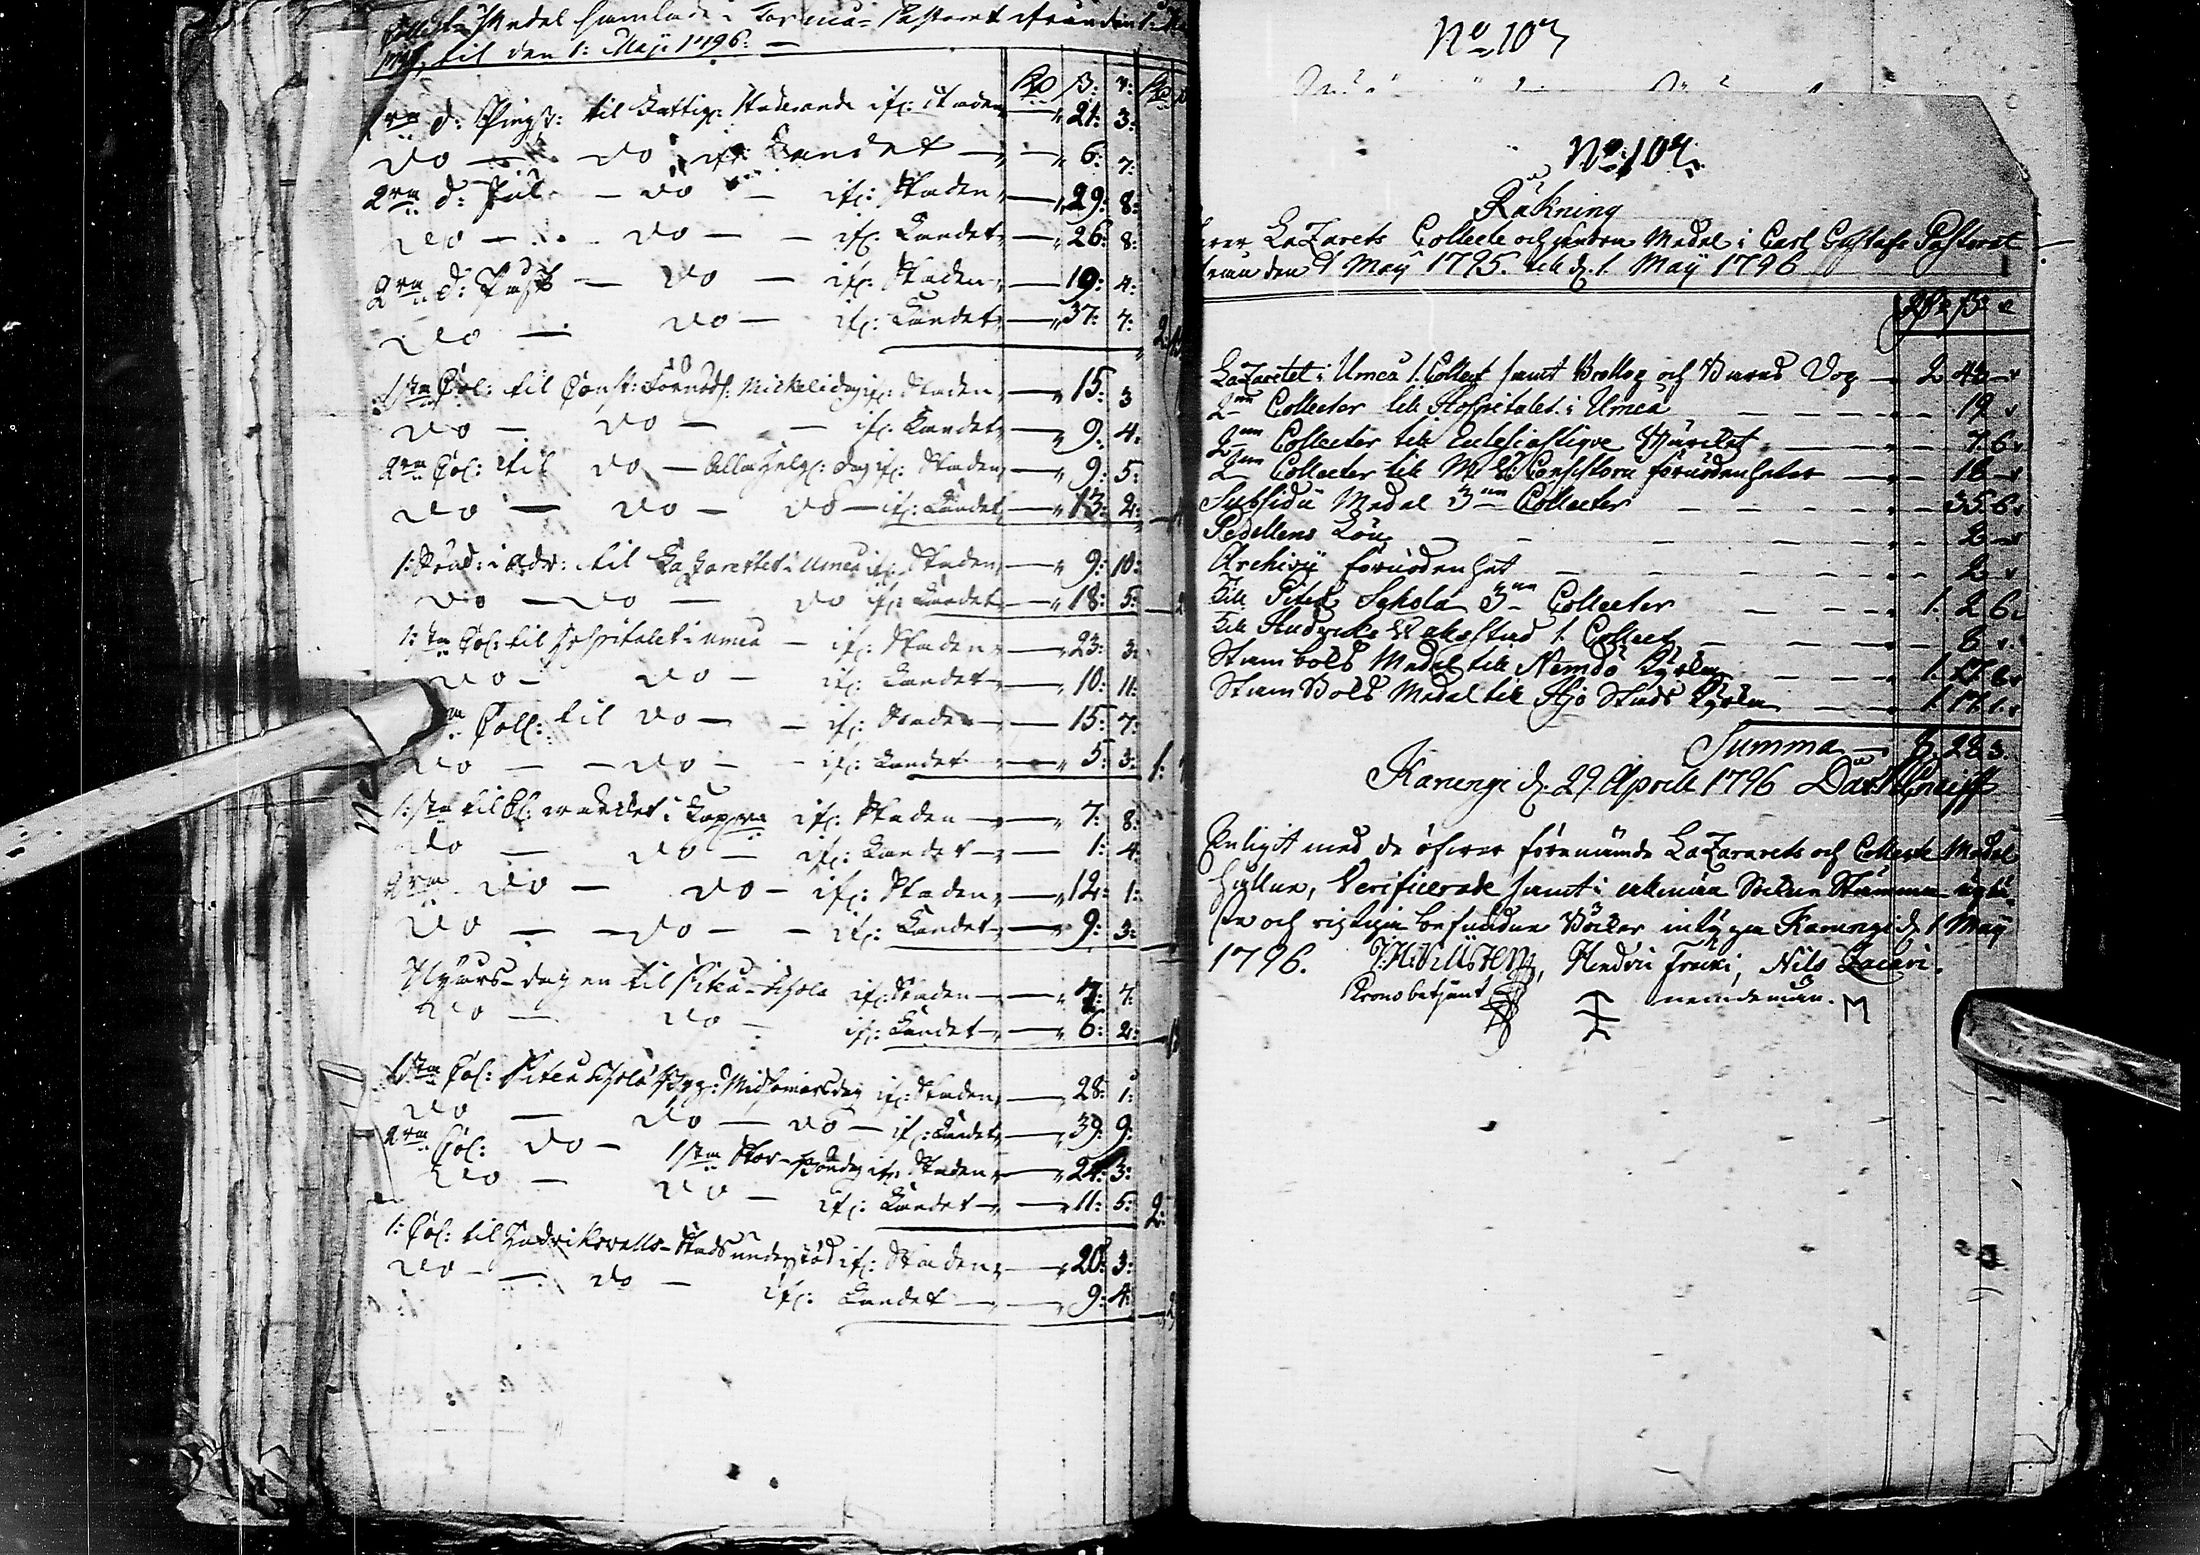 Collect Medel samlade i Torneå Pastorat ifrån den 1: Maji
til den 1: Maji 1796: —
Rd ß: r: Rd
d: Pingst: til Fattig: Studerande ifr: Staden — 21: 3:
do — do ifr: Landet — 6: 7:
2ra d: Jul — do — ifr: Staden — 29: 8:
do — do — ifr: Landet — 26: 8:
2ra d: Påsk — do — ifr: Staden — 19: 4:
do — do — ifr: Landet — 37: 7: 2:
1sta Col: til Consist: Michelidag ifr: Staden — 15: 3
do — do — ifr: Landet — 9: 4:
2ra Col: til do — Alla Helg: dag ifr: Staden — 9: 5:
do — do — do — ifr: Landet — 13: 2:
1: Sönd: i Adv: til Lazarettet i Umeå ifr: Staden — 9: 10:
do — do — do ifr: Landet — 18: 5:
1:sta Col: til Hospitalet i Umeå — ifr: Staden — 23: 3:
do — do — ifr: Landet — 10: 11:
Coll: til do — ifr: Staden — 15: 7:
do — do — ifr: Landet — 5: 3: 1:
1:sta til ifr: Staden — 7: 8:
do — do — ifr: Landet — 1: 4:
2ra do — do — ifr: Staden — 12: 1:
do — do — ifr: Landet — 9: 3:
Nyårs-dagen til Piteå Schola ifr: Staden — 7: 7:
do — do — ifr: Landet — 6: 2:
1sta Col: Piteå Schola Bygg: Midsomarsdag ifr: Staden — 28: 1:
do — do — do — ifr: Landet — 39: 9:
2ra Col: do — 1sta Stor-Böndag ifr: Staden — 24: 3:
do — do — ifr: Landet — 11: 5: 2:
1: Col: til Hudrikswalls-Stads understöd ifr: Staden — 20: 3:
do — do — ifr: Landet — 9: 4:
No 107
No: 107.
Räkning
öfwer LaZarets Collecte och andra Medel i Carl Gustafs Pastorat
ifrån den 1 Maÿ 1795. till d. 1 Maÿ 1796
LaZaretet i Umeå 1. Collect samt Bröllop och Barns Dop — 2 43 —
2ne Collecter till Hospitalet i Umeå — 19 —
2ne Collecter till Eclesiastique Wärcket — 7. 6.
2ne Collecter till M: V: Consistorii förnödenheter — 16 —
Subsidii Medel 3ne Collecter — 35. 6.
Pedellens Lön — 2 —
Archivii förnödenhet — 2 —
Till Piteå Schola 3ne Collecter — 1. 2 6.
Till Hudvicks Walls Stad 1. Collect — 8 —
Stambols Medel till Nemdö Kyrka — 1. 17. 6.
Stam Bols Medel till Hjo Stads Kyrka — 1. 17. 1.
Summa — 8 28 3.
Karungi d. 29. Aprill 1796
Enligit med de öfwer förenämde LaZarets och Collecte Medel
hållne, Verificerade samt i allmän Sockne Stämma
och riktiga befundne Böcker intyga Karungi d. 1 Maÿ
1796. Hendric Fricki, Nils Zacari.
Kronobetjent nemdemän. M